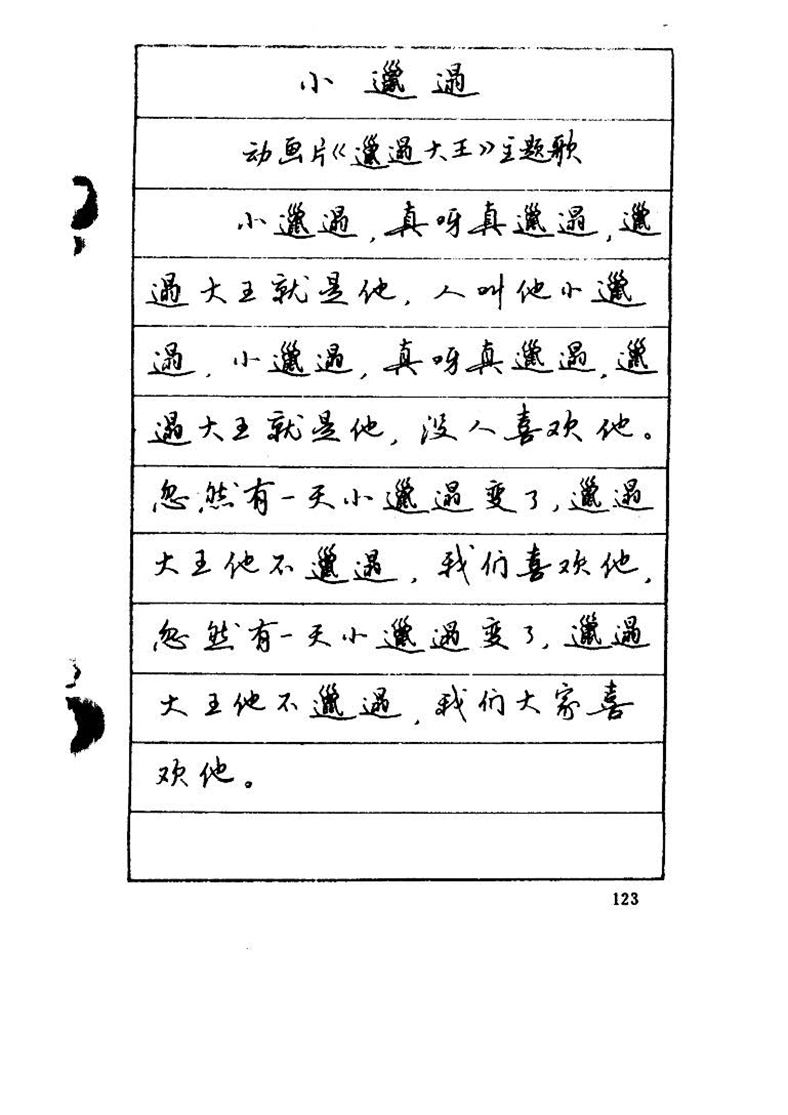 小邋遢
动画片《邋遢大王》主题歌
小邋遢,真呀真邋遢,邋
遢大王就是他,人叫他小邋
遢,小邋遢,真呀真邋遢,邋
遢大王就是他,没人喜欢他。
忽然有一天小邋遢变了,邋遢
大王他不邋遢,我们喜欢他,
忽然有一天小邋遢变了,邋遢
大王他不邋遢,我们大家喜
欢他。
123